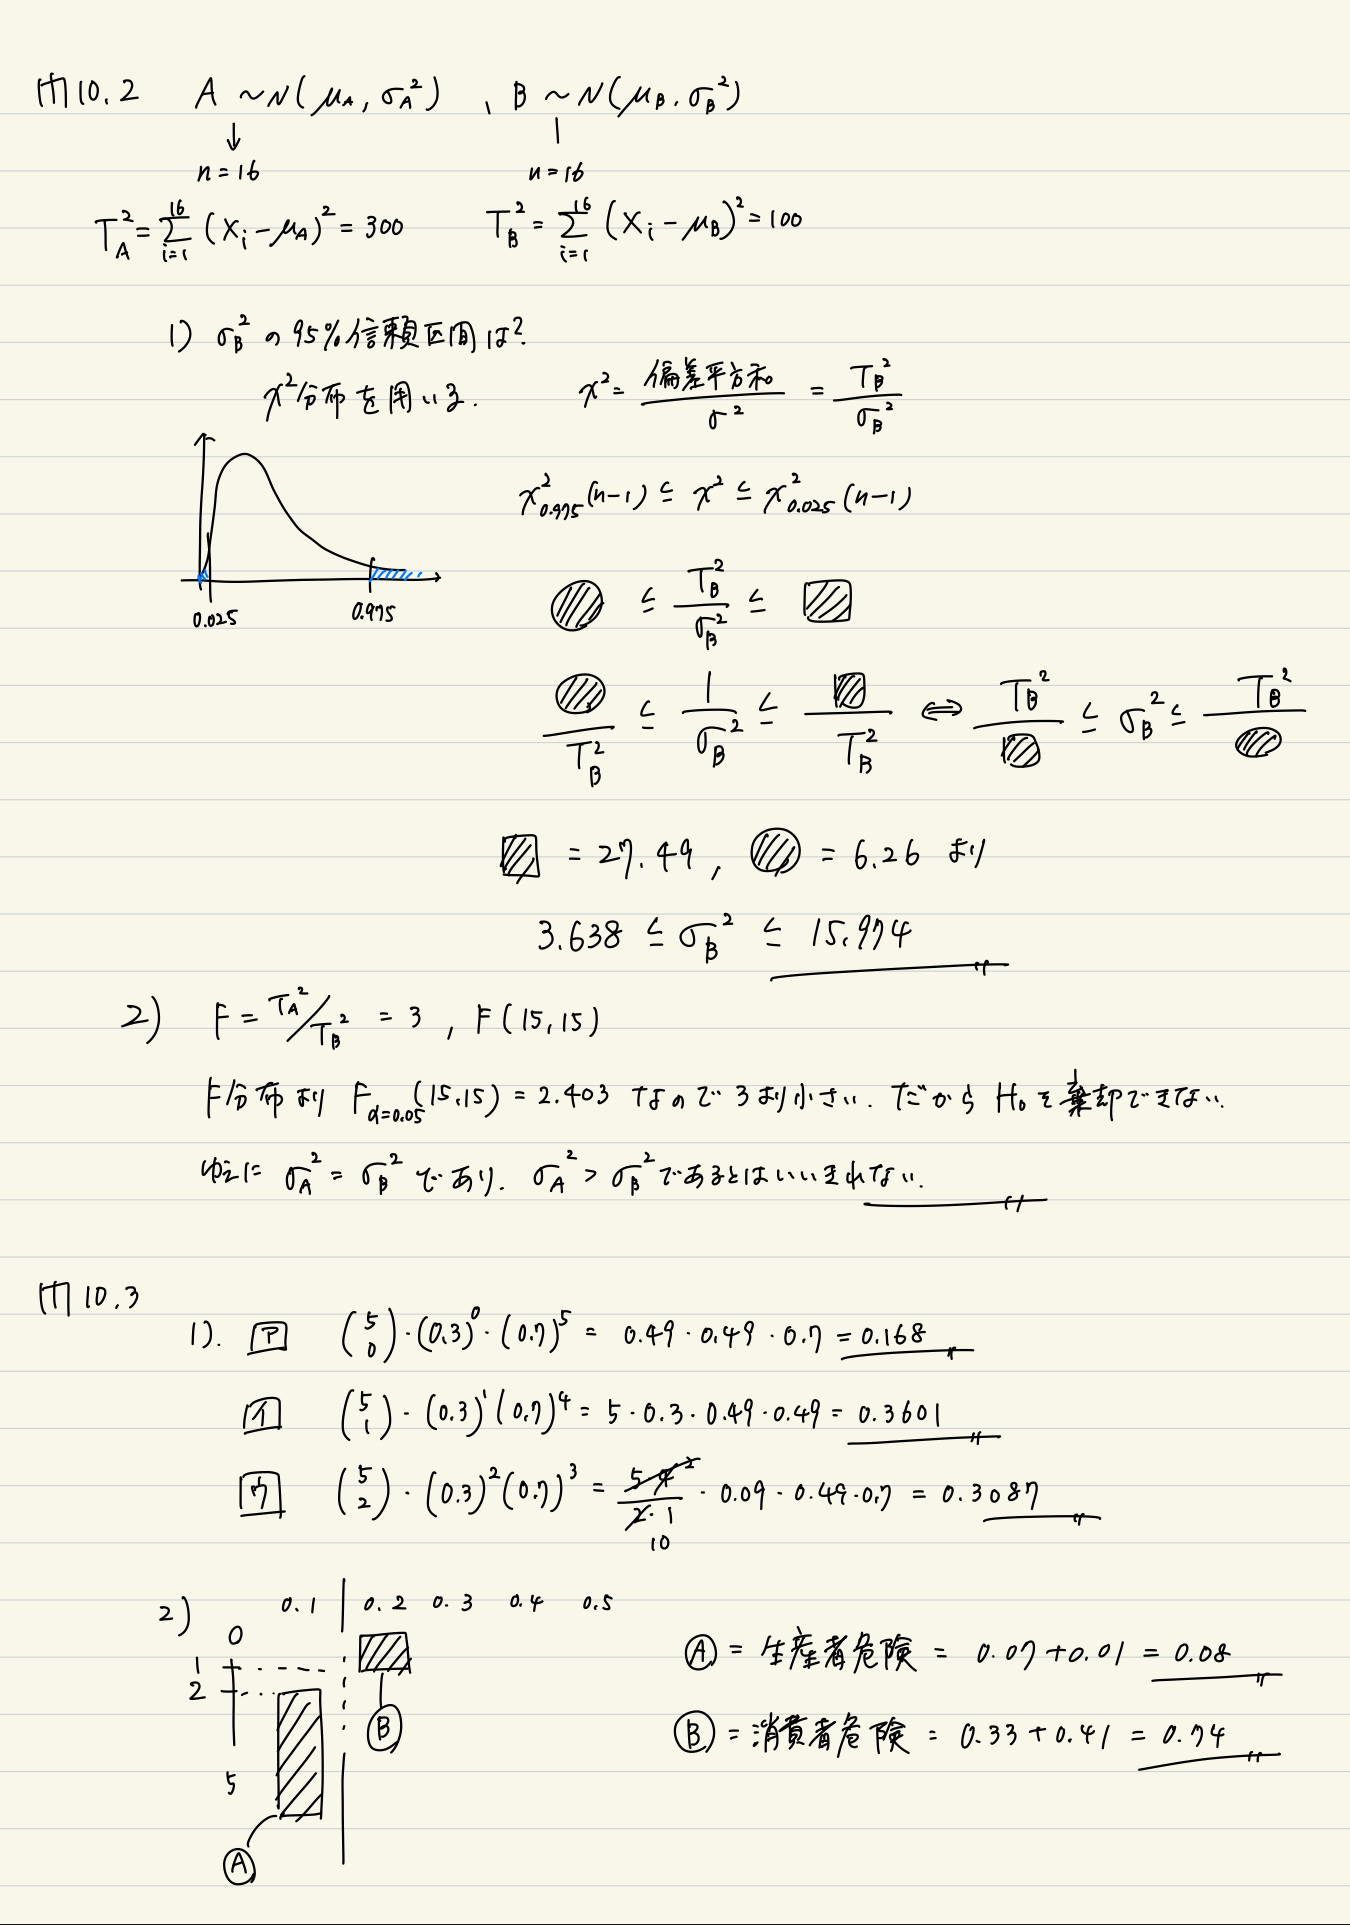 問10.2 A ~N(μA, σA²) , B ~N(μB, σB²)
n=16 n=16
TA²=Σ[i=1,16](Xi-μA)²=300 TB²=Σ[i=1,16](Xi-μB)²=100
1) σB²の95%信頼区間は?
χ²分布を用いる. χ²=偏差平方和/σ² = TB²/σB²
χ²0.975(n-1) ≦ χ² ≦ χ²0.025(n-1)
≦ TB²/σB² ≦
0.025 0.975
/TB² ≦ 1/σB² ≦ /TB² ⇔ TB²/ ≦ σB² ≦ TB²/
= 27.49, = 6.26 より
3.638 ≦ σB² ≦ 15.974
2) F = TA²/TB² = 3 , F(15,15)
F分布より Fα=0.05(15,15) = 2.403 なので 3より小さい. だから H₀を棄却できない.
ゆえに σA² = σB² であり. σA² > σB² であるとはいいきれない.
問10.3
1). ア (5 0)・(0.3)⁰・(0.7)⁵ = 0.49・0.49・0.7 = 0.168
イ (5 1)・(0.3)¹(0.7)⁴ = 5・0.3・0.49・0.49 = 0.3601
ウ (5 2)・(0.3)²(0.7)³ = 5 4 2/2・1 ・0.09・0.49・0.7 = 0.3087
10
2) 0.1 0.2 0.3 0.4 0.5
0
1
2
5
B
A
Ⓐ = 生産者危険 = 0.07+0.01 = 0.08
Ⓑ = 消費者危険 = 0.33+0.41 = 0.74